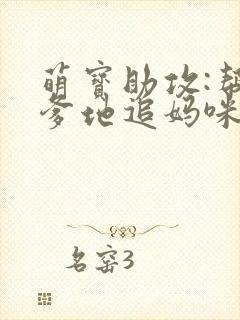 萌宝助攻:帮
爹地追妈咪
名窑3